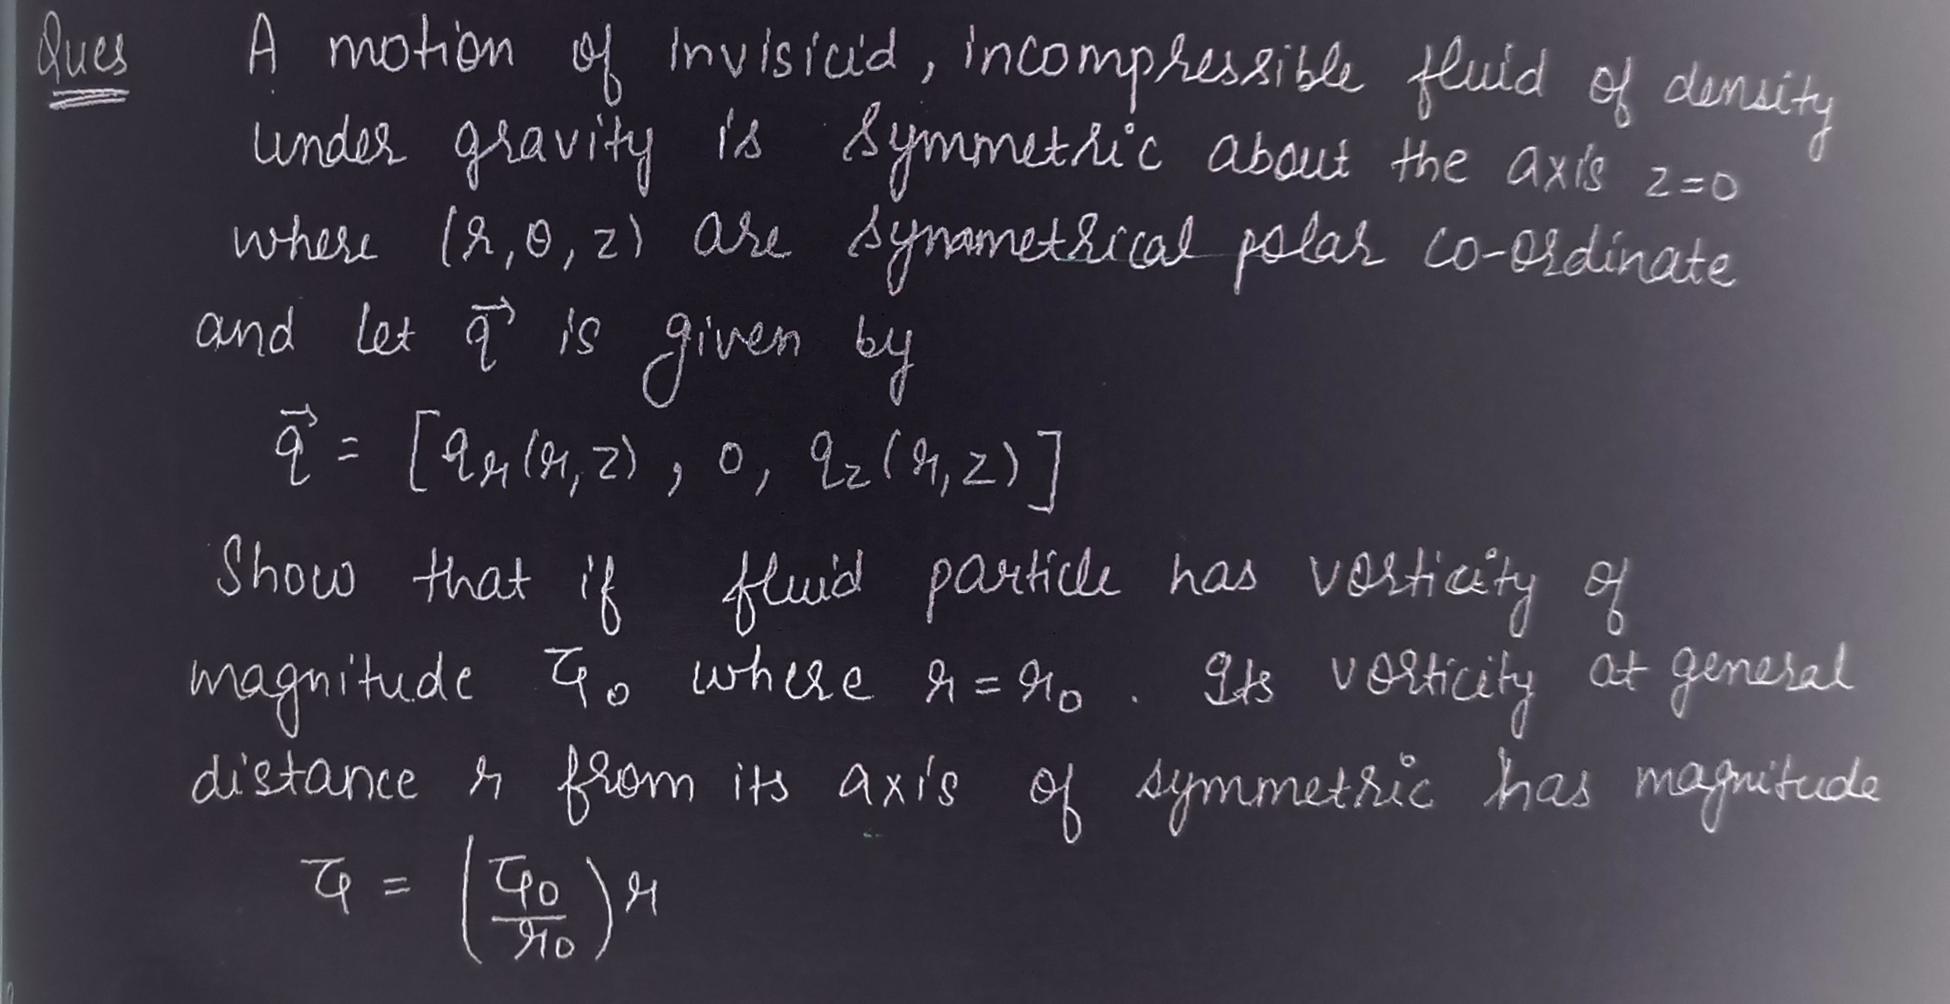 Ques A motion of invisicid, incompressible fluid of density
under gravity is symmetric about the axis z=0
where (r,θ,z) are synametrical polar co-ordinate
and let q⃗ is given by
q⃗ = [qr(r,z), 0, qz(r,z)]
Show that if fluid particle has vorticity of
magnitude ξ0 where r=r0. Its vorticity at general
distance r from its axis of symmetric has magnitude
ξ = (ξ0/r0)r